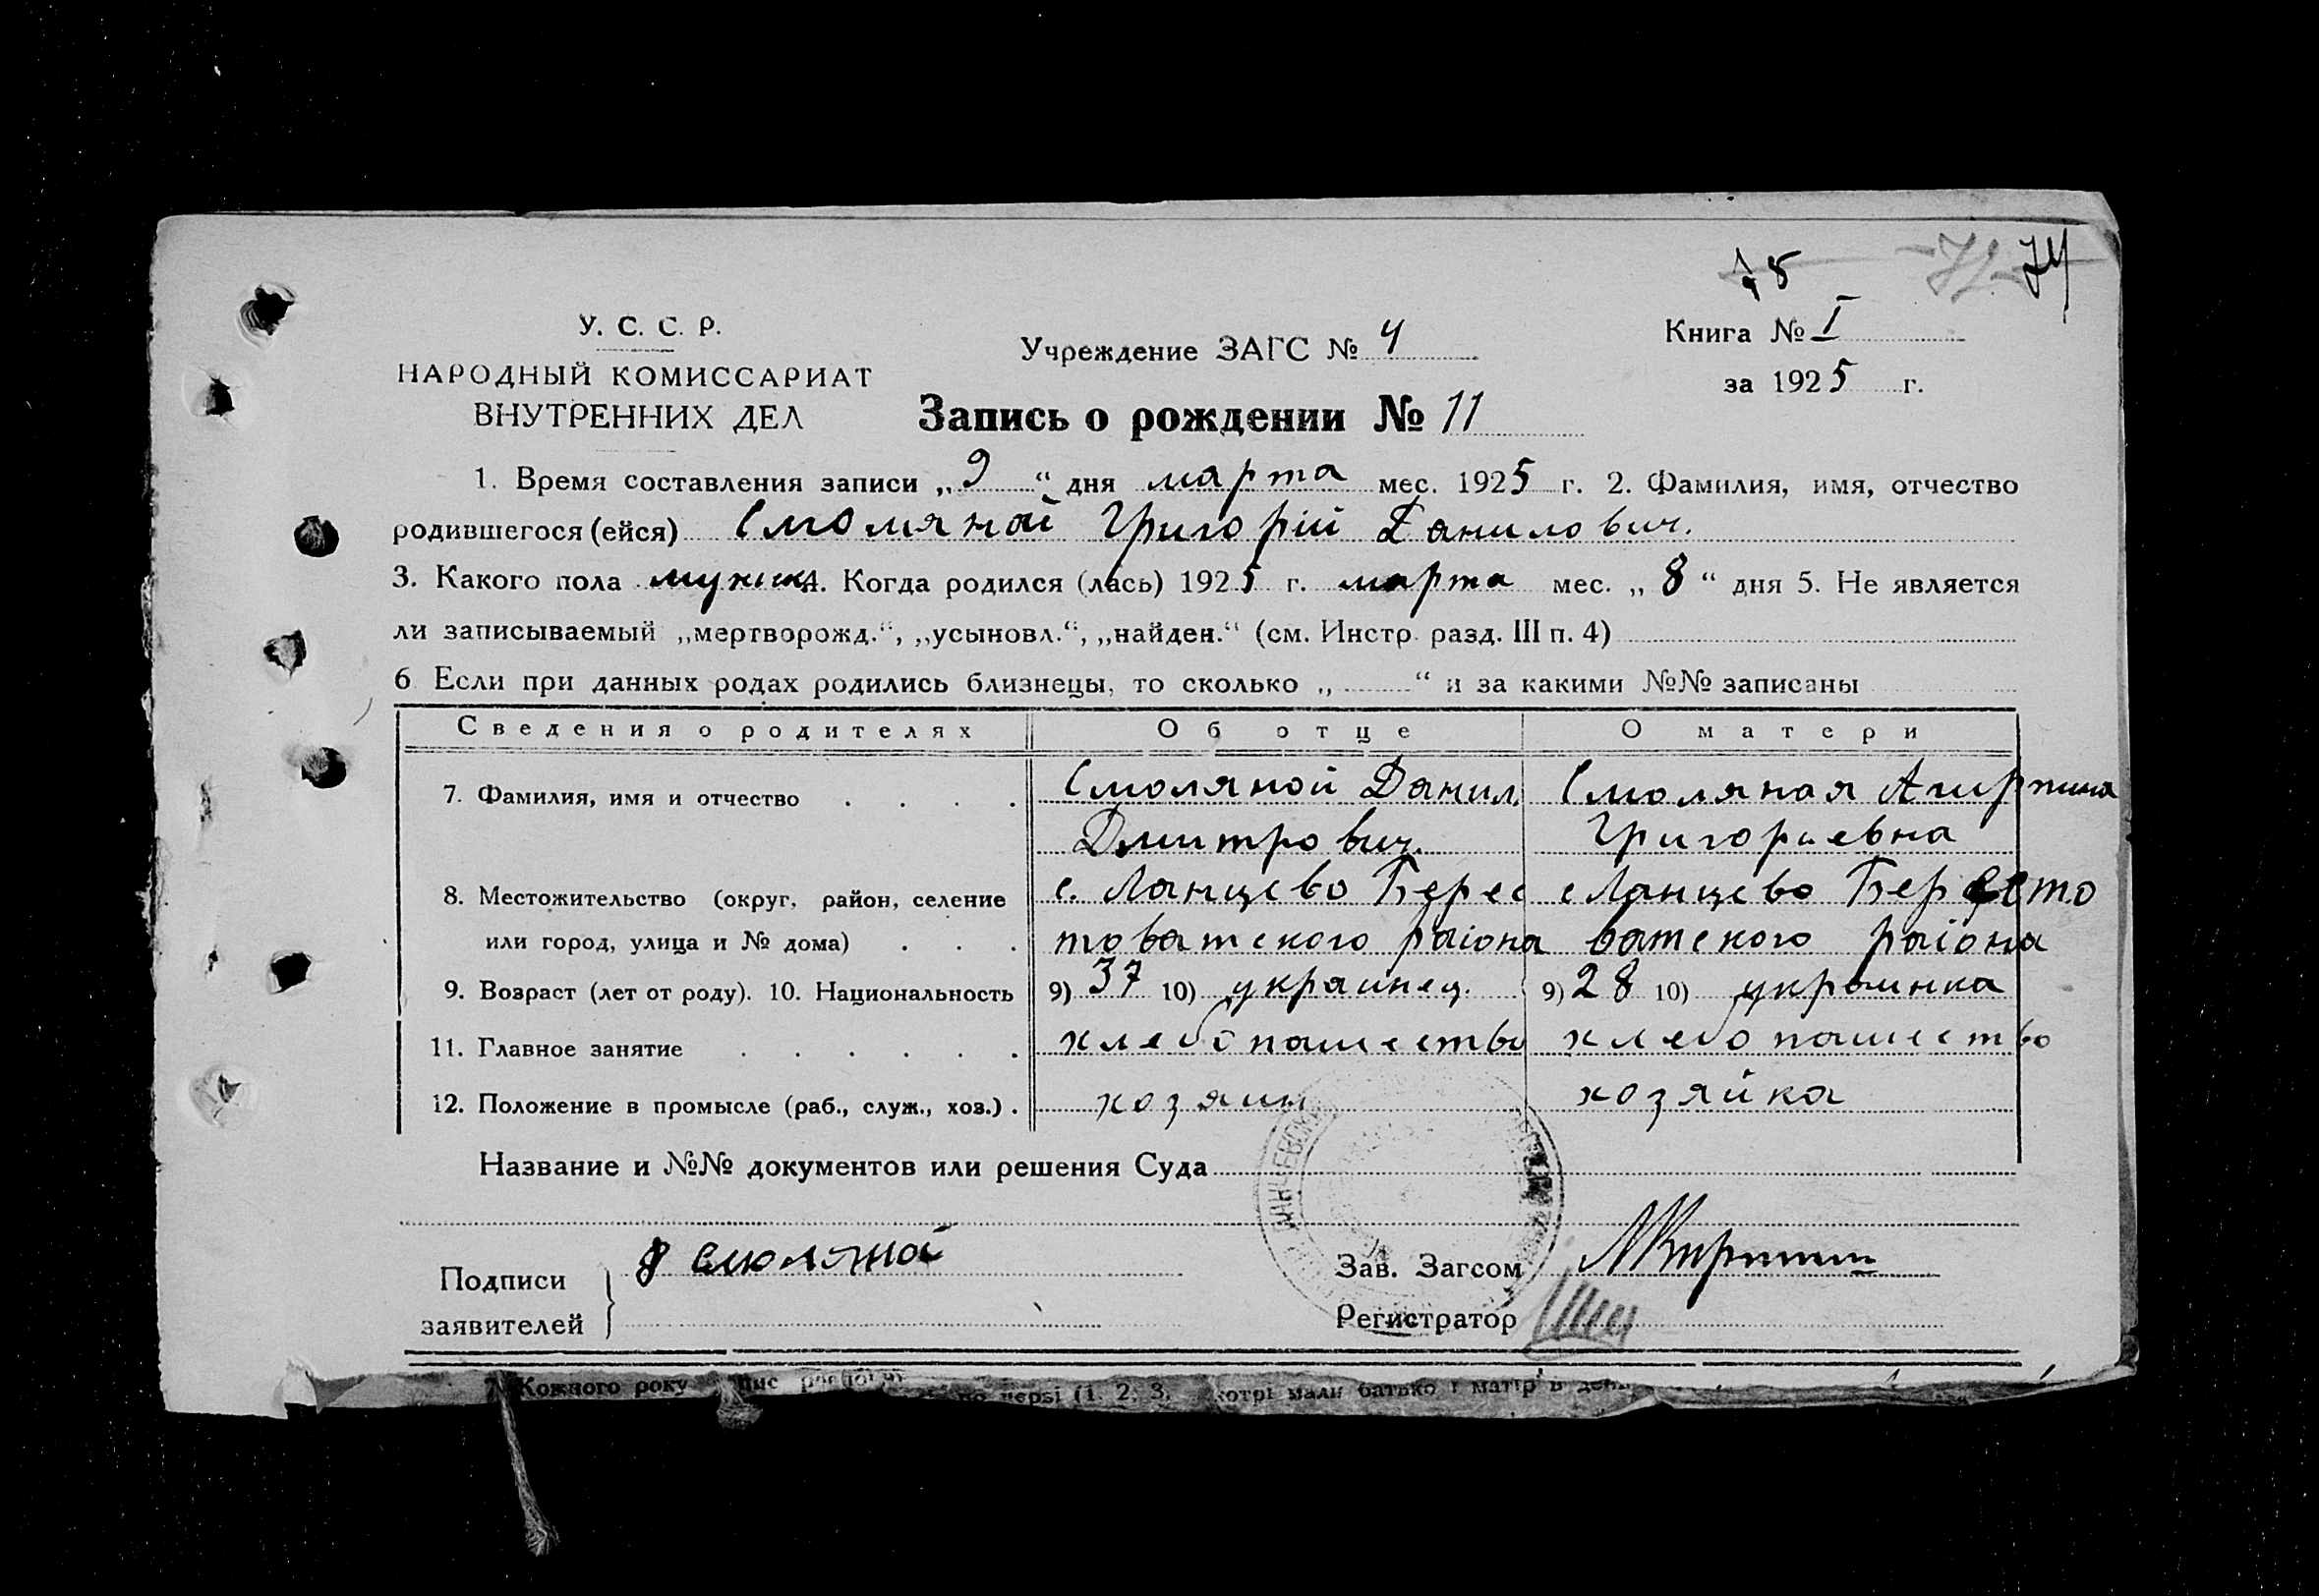 78 71 74
У. С. С. Р.
НАРОДНЫЙ КОМИССАРИАТ
ВНУТРЕННИХ ДЕЛ
Учреждение ЗАГС № 4
Книга № I
за 1925 г.
Запись о рождении № 11
1. Время составления записи „ 9 “ дня марта мес. 1925 г. 2. Фамилия, имя, отчество
родившегося (ейся) Смоляной Григорій Данилович.
3. Какого пола мужск 4. Когда родился (лась) 1925 г. марта мес. „ 8 “ дня 5. Не является
ли записываемый „мертворожд.“, „усыновл.“, „найден.“ (см. Инстр. разд. III п. 4)
6 Если при данных родах родились близнецы, то сколько „ “ и за какими №№ записаны
Сведения о родителях Об отце О матери
7. Фамилия, имя и отчество . . . . Смоляной Данил. Смоляная Агирпина
Дмитрович. Григориевна
8. Местожительство (округ, район, селение с. Ланцево Берес с Ланцево Бересто
или город, улица и № дома) . . . товатского раіона ватского раіона
9. Возраст (лет от роду). 10. Национальность 9) 37 10) украинец. 9) 28 10) украинка
11. Главное занятие . . . . . . хлебопашество хлебопашество
12. Положение в промысле (раб., служ., хоз.) . хозяин хозяйка
Название и №№ документов или решения Суда
Подписи
заявителей
Смоляной
Зав. Загсом
Регистратор
Кожного року
версі (1. 2. 3. котрі мали батько і матір в день